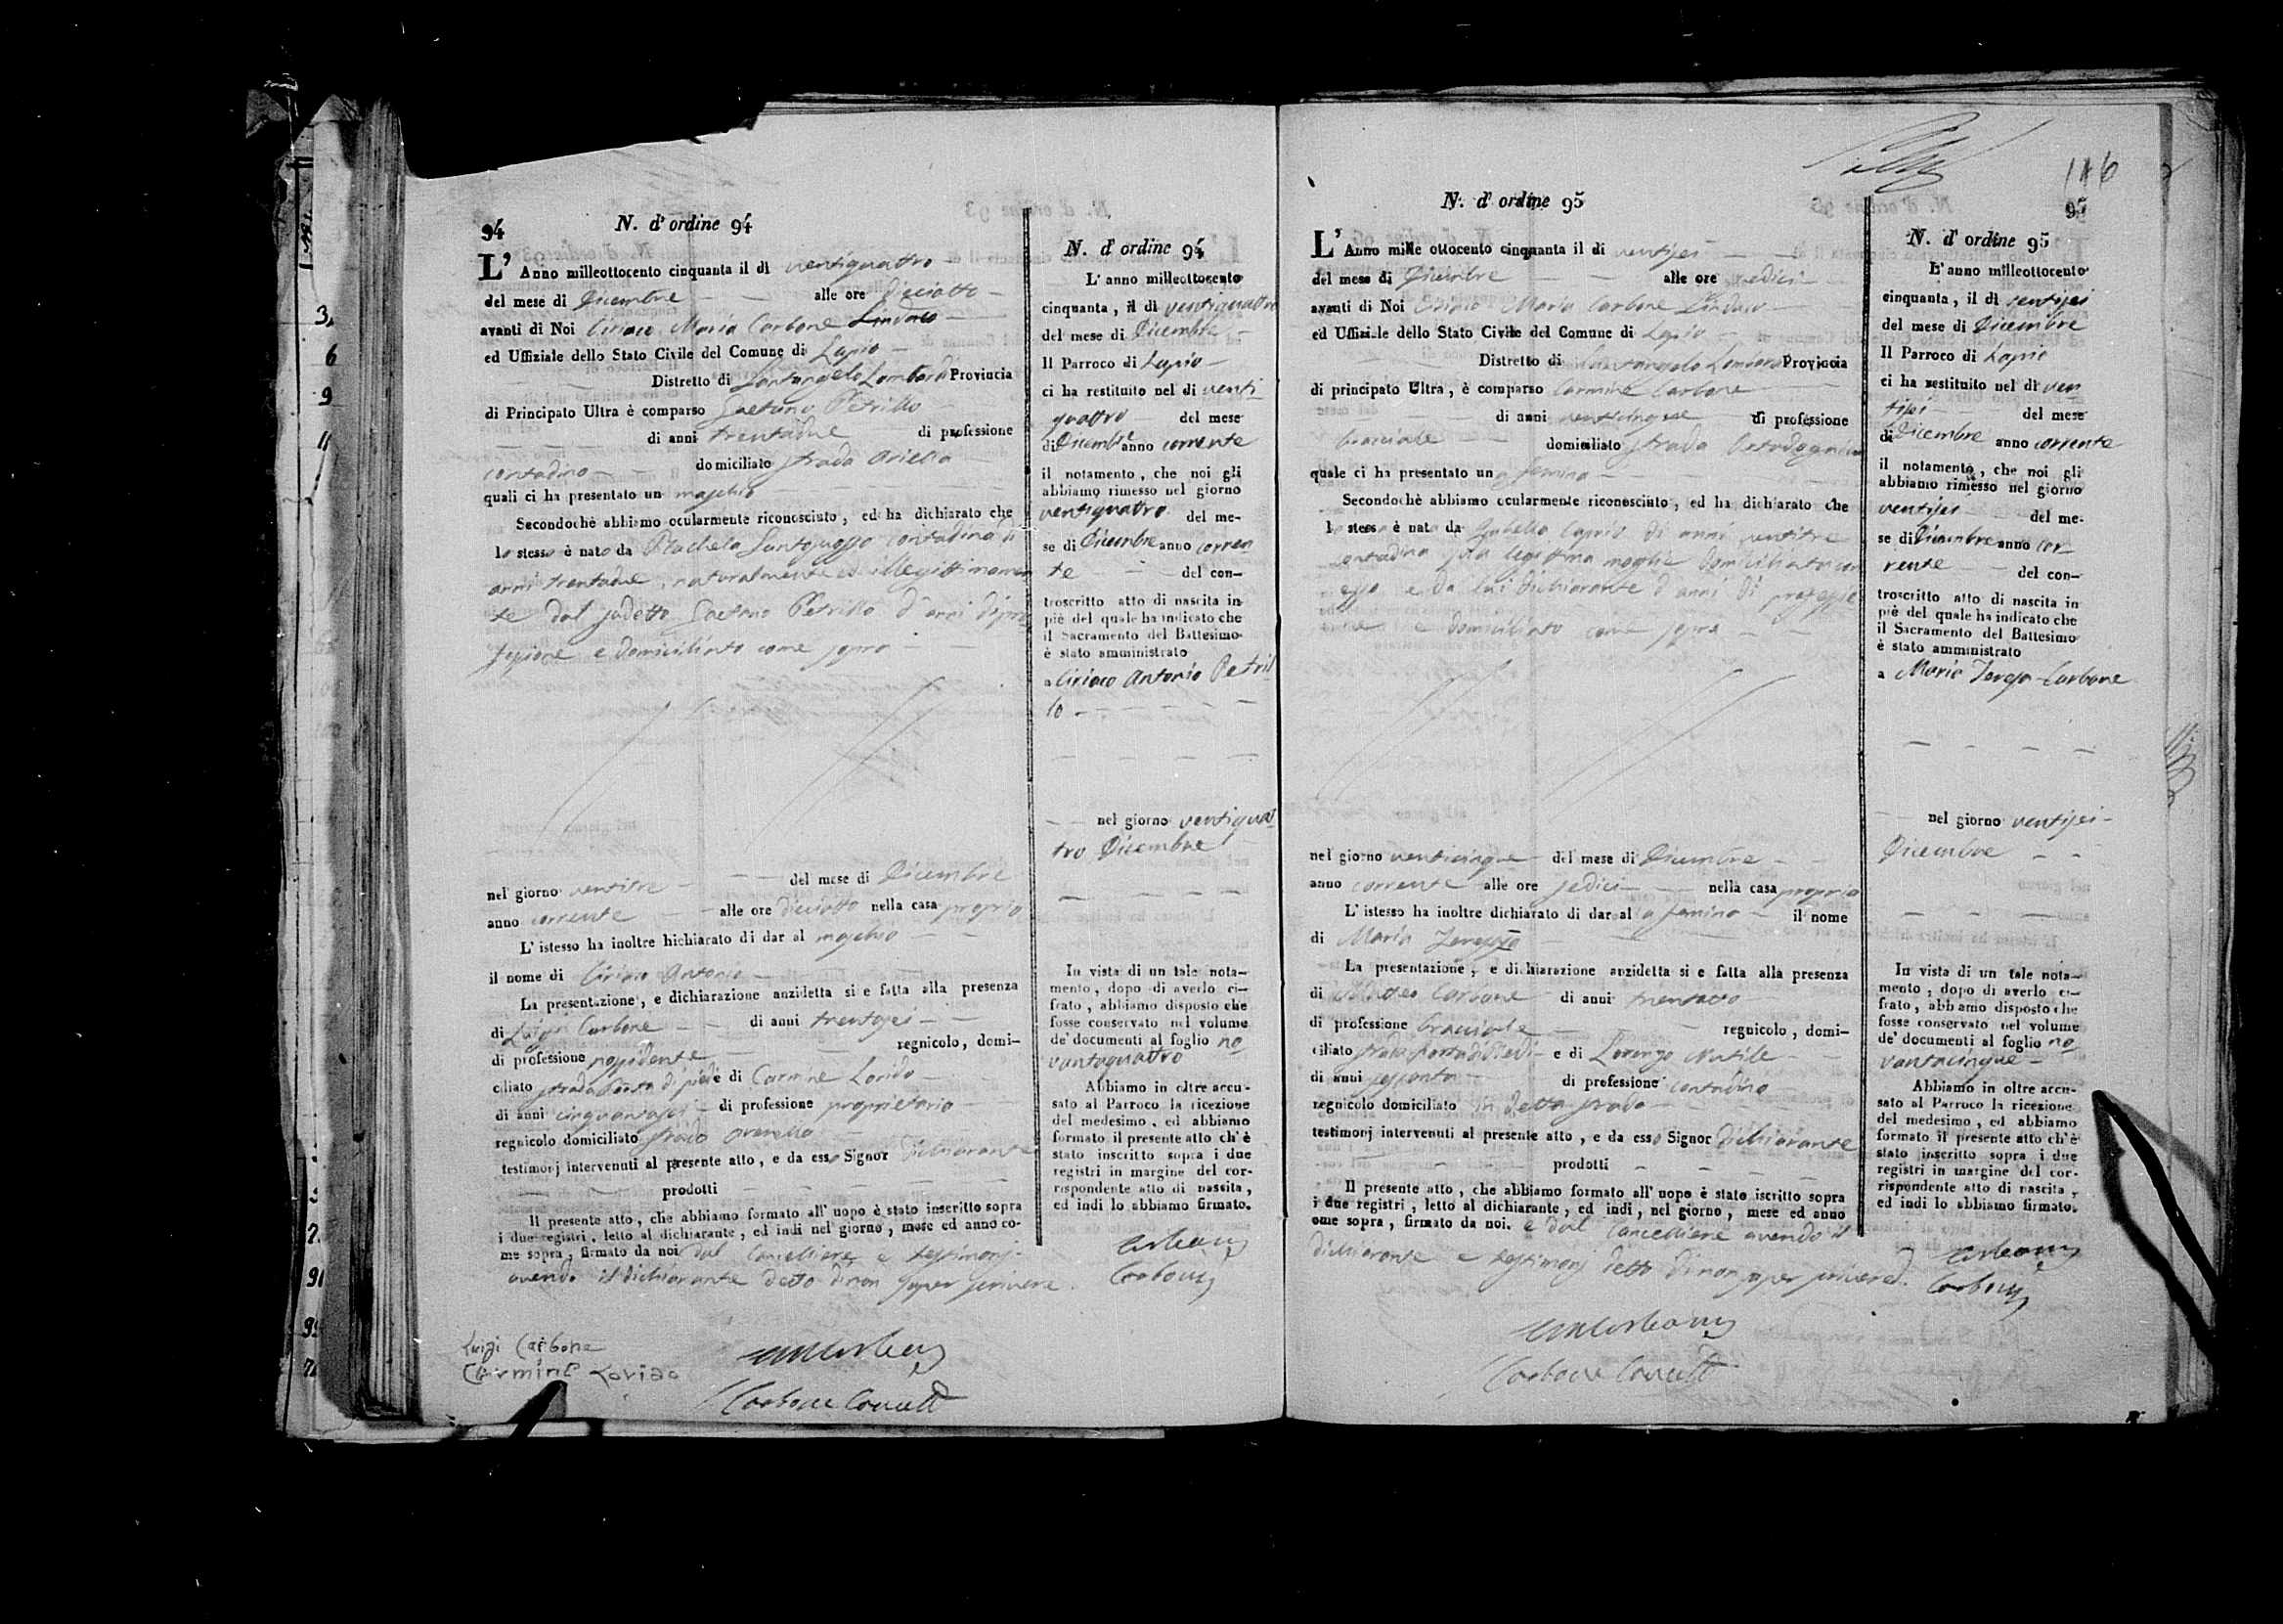 94
N. d'ordine 94
L' Anno milleottocento cinquanta il di ventiquattro
del mese di Dicembre alle ore diciotto
avanti di Noi Ciriaco Maria Carbone Sindaco
ed Uffiziale dello Stato Civile del Comune di Lapio
Distretto di Santangelo Lombardi Provincia
di Principato Ultra è comparso Gaetano Petrillo
di anni trentadue di professione
contadino domiciliato strada Ariella
quali ci ha presentato un maschio
Secondochè abbiamo ocularmente riconosciuto, ed ha dichiarato che
lo stesso è nato da Rachela Santosuosso contadina di
anni trentadue, naturalmente ed illegittimamen
te dal sudetto Gaetano Petrillo d'anni di pro
fessione e domiciliato come sopra
nel giorno ventitre del mese di Dicembre
anno corrente alle ore diciotto nella casa propria
L' istesso ha inoltre hichiarato di dar al maschio
il nome di Ciriaco Antonio
La presentazione, e dichiarazione anzidetta si e fatta alla presenza
di Luigi Carbone di anni trentasei
di professione possidente regnicolo, domi-
ciliato strada Porta di piedi e di Carmine Lorido
di anni cinquantasei di professione proprietario
regnicolo domiciliato strada
testimonj intervenuti al presente atto, e da esso Signor dichiarante
prodotti
Il presente atto, che abbiamo formato all' uopo è stato inscritto sopra
i due registri, letto al dichiarante, ed indi nel giorno, mese ed anno co-
me sopra, firmato da noi dal Cancelliere e testimonj
avendo il dichiarante detto di non saper scrivere.
Luigi Carbone
Carmine Lorido
Carbone
N. d'ordine 94
L' anno milleottocento
cinquanta, il di ventiquattro
del mese di Dicembre
Il Parroco di Lapio
ci ha restituito nel di venti
quattro del mese
di Dicembre anno corrente
il notamento, che noi gli
abbiamo rimesso nel giorno
ventiquattro del me-
se di Dicembre anno corren
te del con-
troscritto atto di nascita in
piè del quale ha indicato che
il Sacramento del Battesimo
è stato amministrato
a Ciriaco Antonio Petril
lo
nel giorno ventiquat
tro Dicembre
In vista di un tale nota-
mento, dopo di averlo ci-
frato, abbiamo disposto che
fosse conservato nel volume
de' documenti al foglio no
vantaquattro
Abbiamo in oltre accu-
sato al Parroco la ricezione
del medesimo, ed abbiamo
formato il presente atto ch'è
stato inscritto sopra i due
registri in margine del cor-
rispondente atto di nassita,
ed indi lo abbiamo firmato.
116
95
N. d' ordine 95
L' Anno mille ottocento cinquanta il di ventisei
del mese di Dicembre alle ore sedici
avanti di Noi Ciriaco Maria Carbone Sindaco
ed Uffiziale dello Stato Civile del Comune di Lapio
Distretto di Santangelo Lombardi Provincia
di principato Ultra, è comparso Carmine Carbone
di anni venticinque di professione
bracciale domiciliato strada
quale ci ha presentato una femina
Secondochè abbiamo ocularmente riconosciuto, ed ha dichiarato che
l stess è nat da Isabella Caprio di anni ventitre
contadina sua legittima moglie domiciliata con
esso e da lui dichiarante d'anni di professio
ne e domiciliato come sopra
nel giorno venticinque del mese di Dicembre
anno corrente alle ore sedici nella casa propria
L' istesso ha inoltre dichiarato di dar alla femina il nome
di Maria Teresa
La presentazione, e dichiarazione anzidetta si e fatta alla presenza
di Carbone di anni trentotto
di professione bracciale regnicolo, domi-
ciliato strada porta di Piedi e di Lorenzo Nutile
di anni sessanta di professione contadino
regnicolo domiciliato in detta strada
testimonj intervenuti al presente atto, e da esso Signor dichiarante
prodotti
Il presente atto, che abbiamo formato all' uopo è stato iscritto sopra
i due registri, letto al dichiarante, ed indi, nel giorno, mese ed anno
ome sopra, firmato da noi. e dal Cancelliere avendo il
dichiarante e testimonj detto di non saper scrivere.
Carbone
N. d' ordine 95
L' anno milleottocento
cinquanta, il di ventisei
del mese di Dicembre
Il Parroco di Lapio
ci ha restituito nel di ven
tisei del mese
di Dicembre anno corrente
il notamento, che noi gli
abbiamo rimesso nel giorno
ventisei del me-
se di Dicembre anno cor-
rente del con-
troscritto atto di nascita in
piè del quale ha indicato che
il Sacramento del Battesimo
è stato amministrato
a Maria Teresa Carbone
nel giorno ventisei
Dicembre
In vista di un tale nota-
mento, dopo di averlo ci-
frato, abbiamo disposto che
fosse conservato nel volume
de' documenti al foglio no
vantacinque
Abbiamo in oltre accu-
sato al Parroco la ricezione
del medesimo, ed abbiamo
formato il presente atto ch'è
stato inscritto sopra i due
registri in margine del cor-
rispondente atto di nascita,
ed indi lo abbiamo firmato.